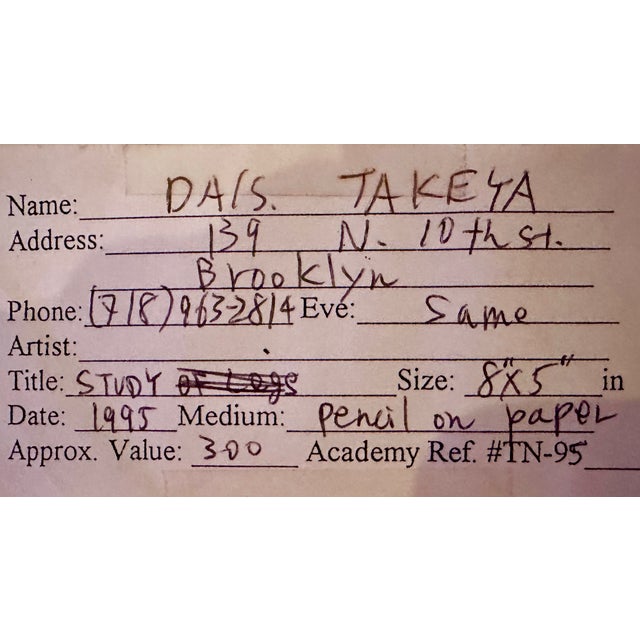 Name: DAIS. TAKEYA
Address: 139 N. 10th st.
Brooklyn
Phone: (718) 963-2814 Eve: Same
Artist:
Title: STUDY of Legs Size: 8"x5" in
Date: 1995 Medium: pencil on paper
Approx. Value: 300 Academy Ref. #TN-95